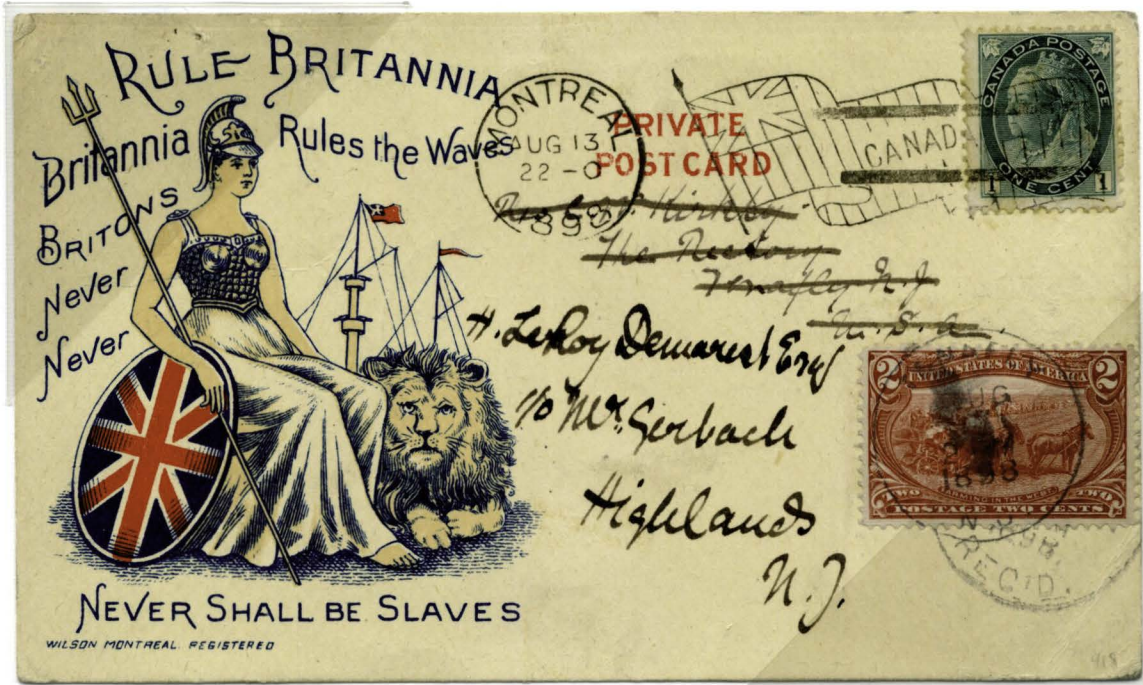 RULE BRITANNIA
Britannia Rules the Waves
BRITONS
Never
Never
NEVER SHALL BE SLAVES
WILSON MONTREAL. REGISTERED
MONTREAL
AUG 13
22-0
1898
PRIVATE
POST CARD
CANADA
CANADA POSTAGE
1 ONE CENT 1
The Rectory
Tenafly N.J
U.S.A.
H. LeRoy Demarest Esq
c/o Mr. Gerbach
Highlands
N.J.
2 UNITED STATES OF AMERICA 2
TWO FARMING IN THE WEST TWO
POSTAGE TWO CENTS
AUG
1898
98
REC'D.
418